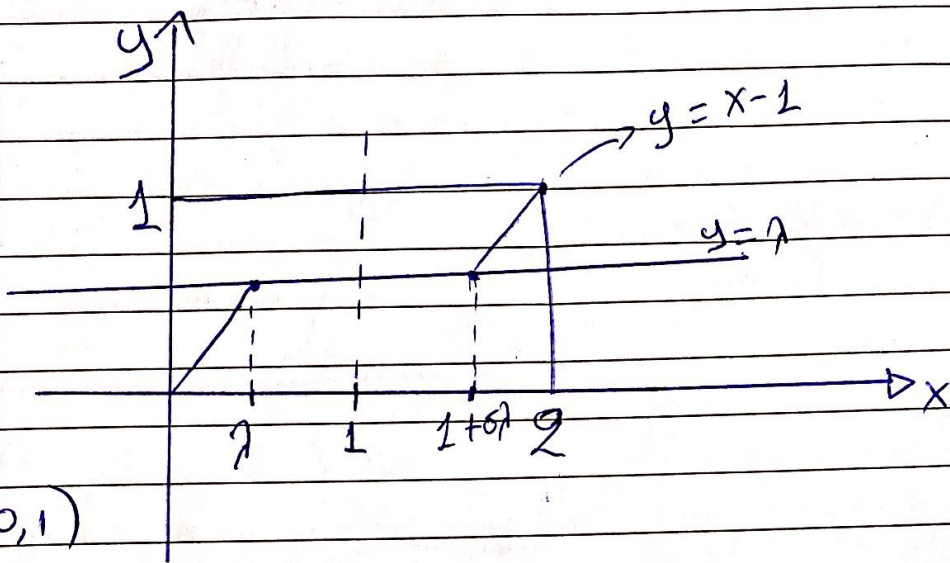 y
y = x-1
1
y = λ
x
λ 1 1+σλ 2
0,1)